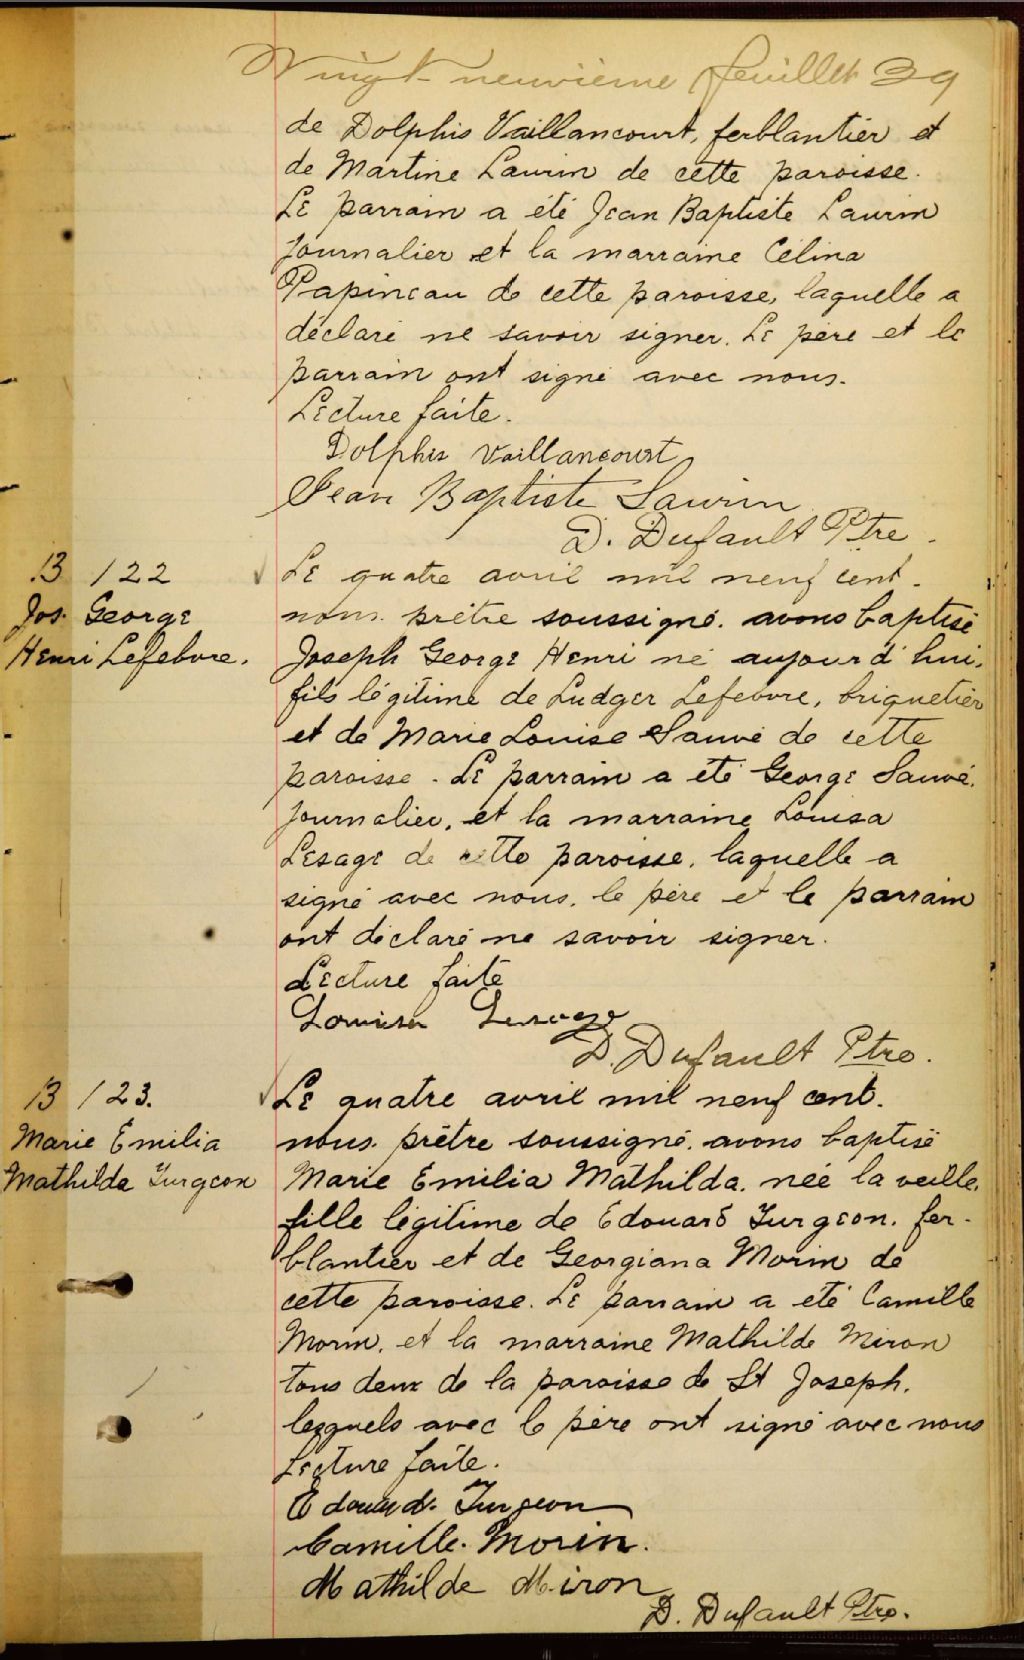 Vingt neuvième feuillet 39
de Dolphis Vaillancourt, ferblantier et
de Martine Laurin de cette paroisse.
Le parrain a été Jean Baptiste Laurin
journalier et la marraine Célina
Papineau de cette paroisse, laquelle a
déclaré ne savoir signer. Le père et le
parrain ont signé avec nous.
Lecture faite.
Dolphis Vaillancourt
Jean Baptiste Laurin
D. Dufault Ptre.
B 122
Jos. George
Henri Lefebvre.
Le quatre avril mil neuf cent.
nous prêtre soussigné. avons baptisé
Joseph George Henri né aujourd'hui.
fils légitime de Ludger Lefebvre, briquetier
et de Marie Louise Sauvé de cette
paroisse. Le parrain a été George Sauvé.
journalier, et la marraine Louisa
Lesage de cette paroisse, laquelle a
signé avec nous, le père et le parrain
ont déclaré ne savoir signer.
Lecture faite
Louisa Lesage
D. Dufault Ptre.
B 123.
Marie Emilia
Mathilda Turgeon
Le quatre avril mil neuf cent.
nous. prêtre soussigné. avons baptisé
Marie Emilia Mathilda. née la veille.
fille légitime de Edouard Turgeon. fer-
blantier et de Georgiana Morin de
cette paroisse. Le parrain a été Camille
Morin, et la marraine Mathilde Miron
tous deux de la paroisse de St Joseph.
lesquels avec le père ont signé avec nous
Lecture faite.
Edouard. Turgeon
Camille. Morin.
Mathilde Miron
D. Dufault Ptre.